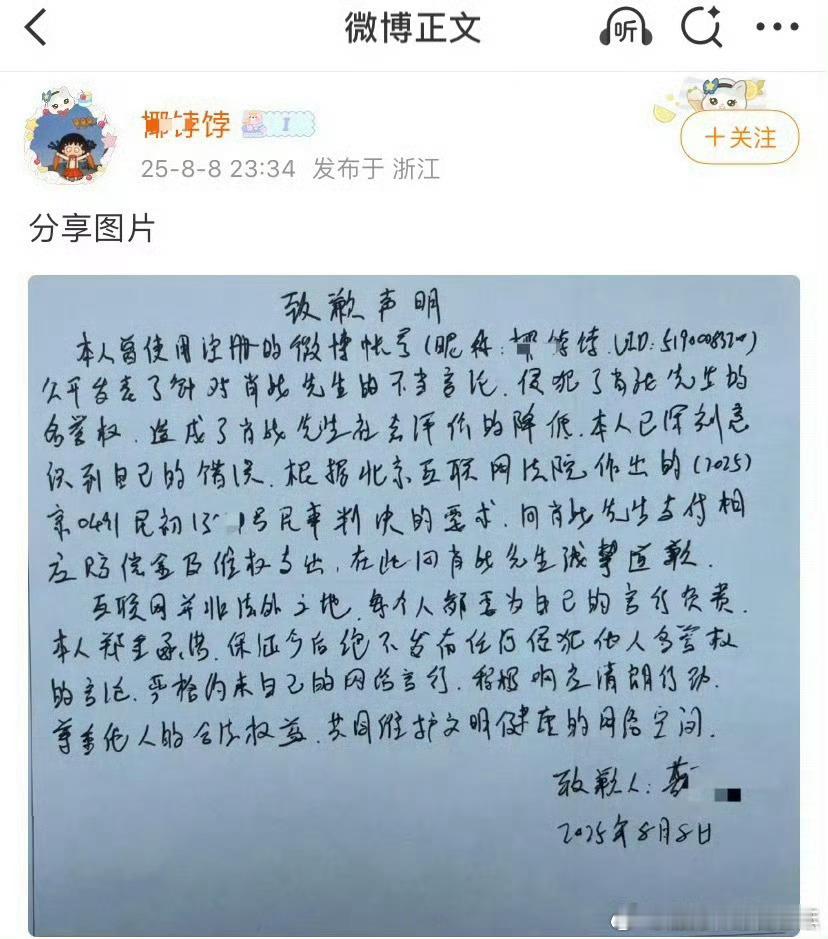 微博正文
听
饽饽
I
25-8-8 23:34 发布于 浙江
+关注
分享图片
致歉声明
本人曾使用注册的微博帐号(昵称: 饽饽.UID:5190008320)
公开发表了针对肖战先生的不当言论,侵犯了肖战先生的
名誉权,造成了肖战先生社会评价的降低.本人已深刻意
识到自己的错误.根据北京互联网法院作出的(2025)
京0491民初13 号民事判决的要求.向肖战先生支付相
应赔偿金及维权支出,在此向肖战先生诚挚道歉.
互联网并非法外之地,每个人都要为自己的言行负责.
本人郑重承诺.保证今后绝不发布任何侵犯他人名誉权
的言论.严格约束自己的网络言行.积极响应清朗行动.
尊重他人的合法权益.共同维护文明健康的网络空间.
致歉人:
2025年8月8日